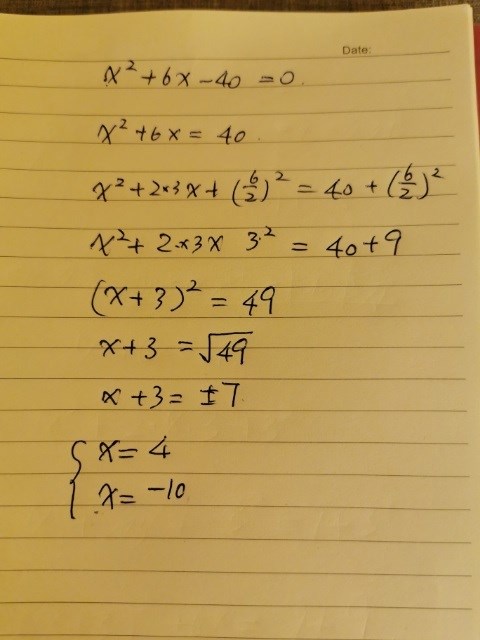 Date:
x² + 6x - 40 = 0.
x² + 6x = 40.
x² + 2×3x + (6/2)² = 40 + (6/2)²
x² + 2×3x 3² = 40 + 9
(x + 3)² = 49
x + 3 = √49
x + 3 = ±7
{ x = 4
x = -10